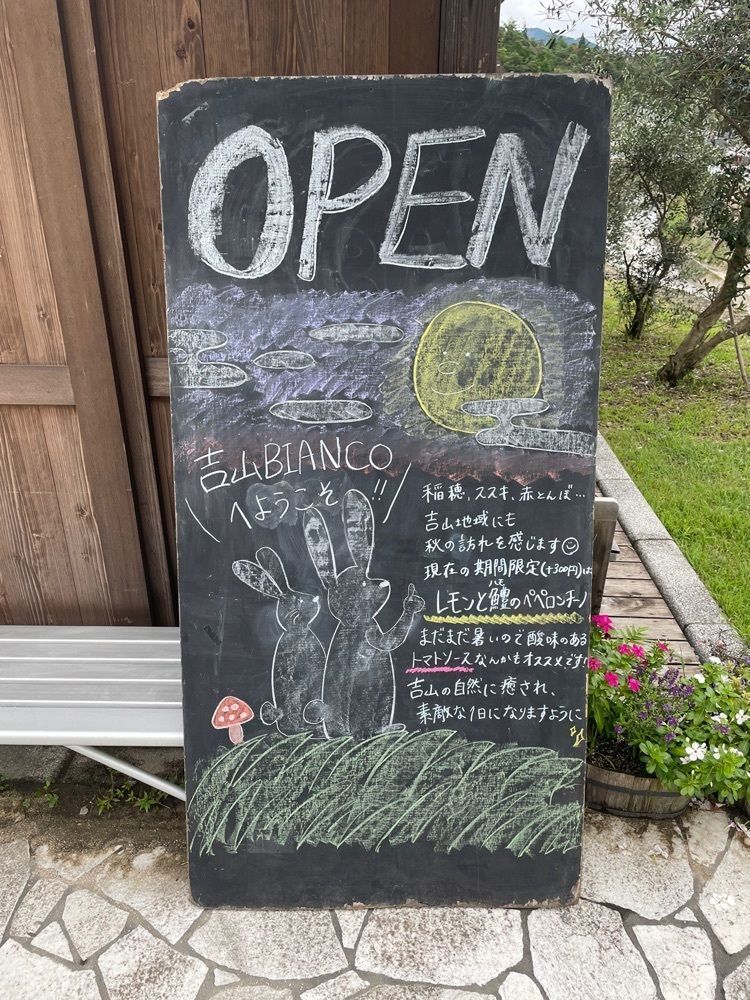 OPEN
吉山BIANCO
へようこそ!!
稲穂、ススキ、赤とんぼ…
吉山地域にも
秋の訪れを感じます☺
現在の期間限定(+300円)は
ハモ
レモンと鱧のペペロンチーノ
まだまだ暑いので酸味のある
トマトソースなんかもオススメです!
吉山の自然に癒され、
素敵な1日になりますように